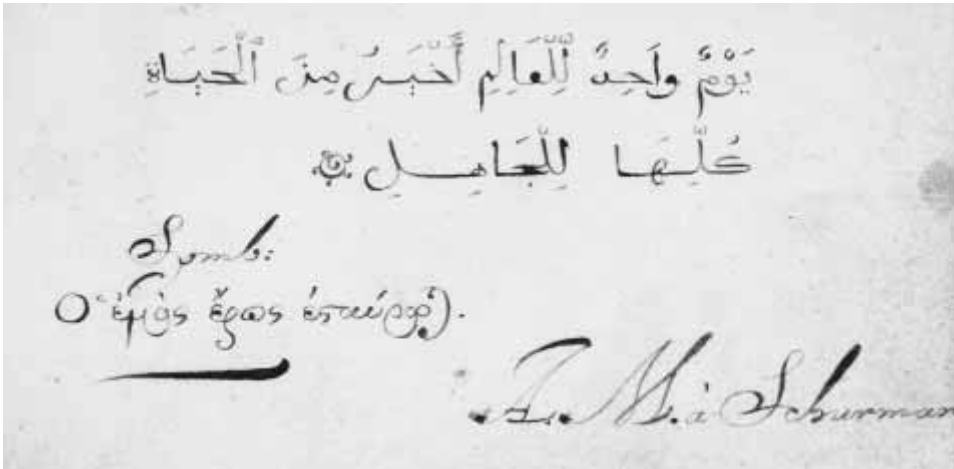 يَوْمٌ وَاحِدٌ لِلْعَالِمِ أَخْيَرُ مِنَ ٱلْحَيَاةِ
كُلِّهَا لِلْجَاهِلِ
Symb:
Ὁ ἐμὸς ἔρως
A. M. à Schurman